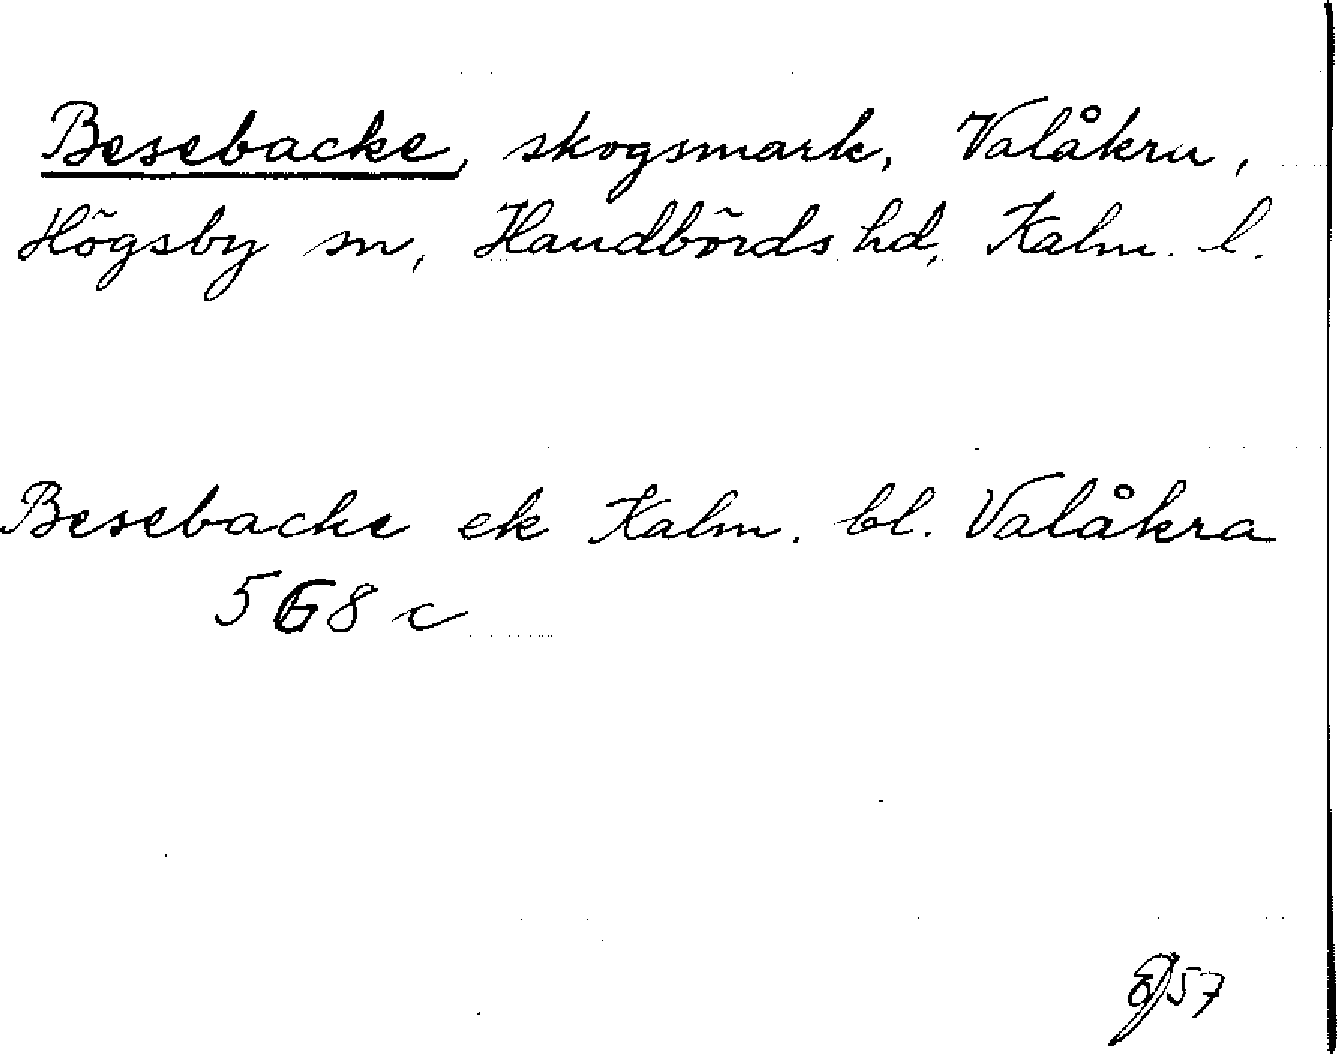 Besebacke, skogsmark, Valåkra,
Högsby sn, Handbörds hd, Kalm. l.
Besebacke ek Kalm. bl. Valåkra
568 c
57